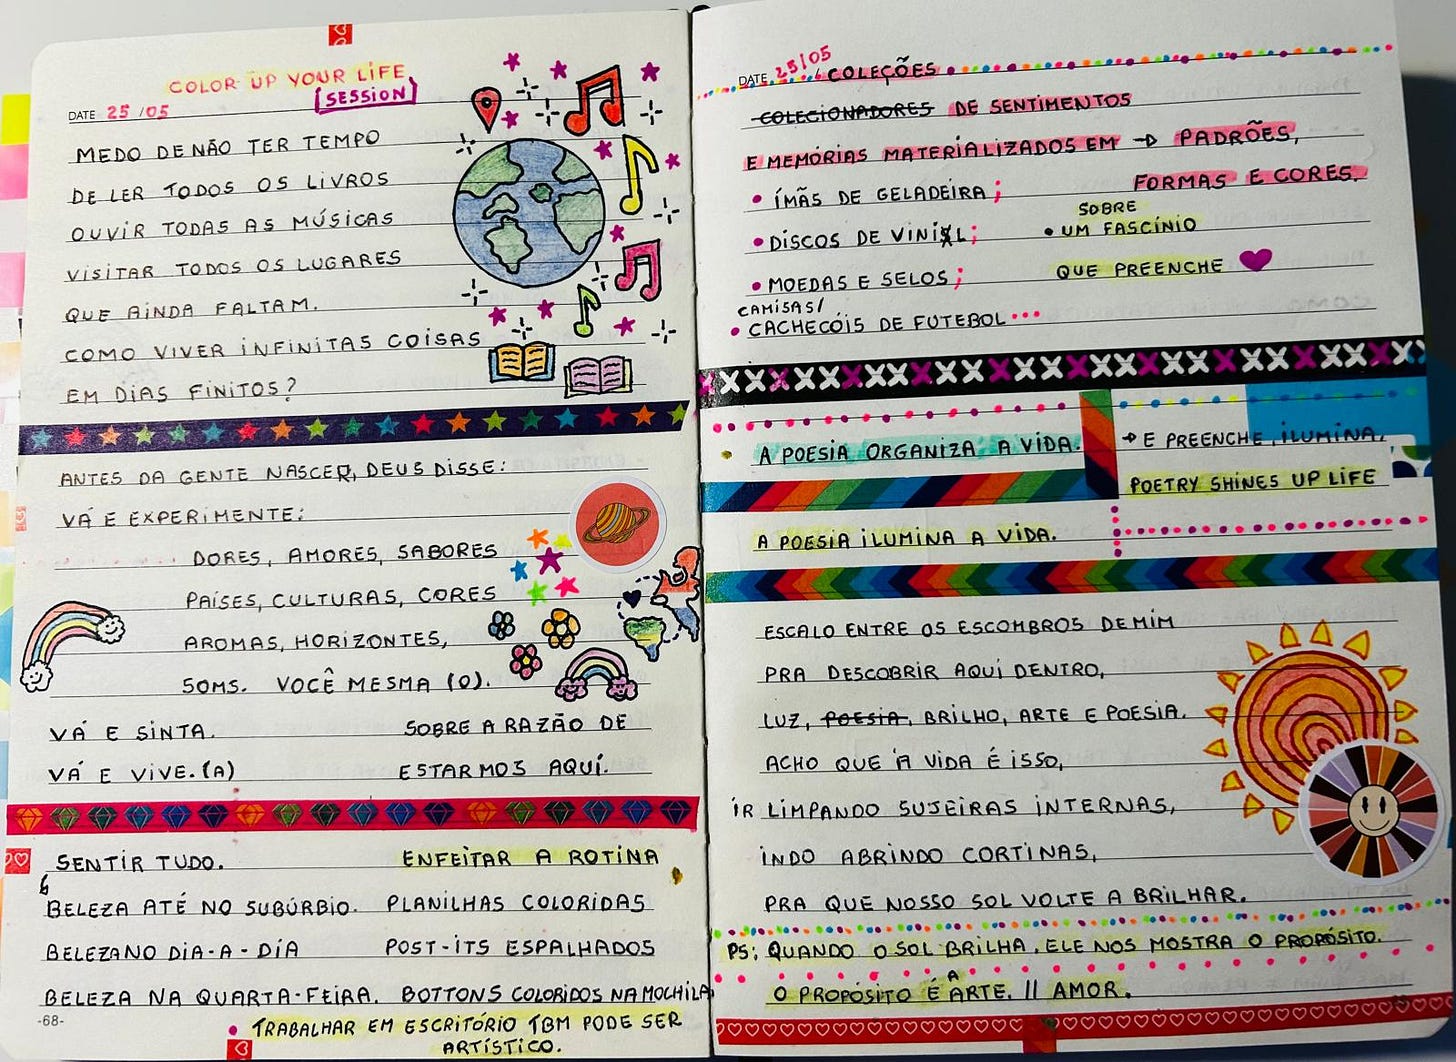 COLOR UP YOUR LIFE
SESSION
DATE 25/05
MEDO DE NÃO TER TEMPO
DE LER TODOS OS LIVROS
OUVIR TODAS AS MÚSICAS
VISITAR TODOS OS LUGARES
QUE AINDA FALTAM.
COMO VIVER INFINITAS COISAS
EM DIAS FINITOS?
ANTES DA GENTE NASCER, DEUS DISSE:
VÁ E EXPERIMENTE:
DORES, AMORES, SABORES
PAÍSES, CULTURAS, CORES
AROMAS, HORIZONTES,
SONS. VOCÊ MESMA (O).
VÁ E SINTA. SOBRE A RAZÃO DE
VÁ E VIVE.(A) ESTARMOS AQUI.
SENTIR TUDO. ENFEITAR A ROTINA
BELEZA ATÉ NO SUBÚRBIO. PLANILHAS COLORIDAS
BELEZA NO DIA-A-DIA POST-ITS ESPALHADOS
BELEZA NA QUARTA-FEIRA. BOTTONS COLORIDOS NA MOCHILA
-68-
• TRABALHAR EM ESCRITÓRIO TBM PODE SER
ARTÍSTICO.
DATE 25/05 COLEÇÕES
COLECIONADORES DE SENTIMENTOS
E MEMÓRIAS MATERIALIZADOS EM → PADRÕES,
FORMAS E CORES.
• ÍMÃS DE GELADEIRA;
SOBRE
• DISCOS DE VINIL; • UM FASCÍNIO
• MOEDAS E SELOS; QUE PREENCHE
CAMISAS/
• CACHECÓIS DE FUTEBOL...
A POESIA ORGANIZA A VIDA. → E PREENCHE, ILUMINA.
POETRY SHINES UP LIFE
A POESIA ILUMINA A VIDA.
ESCALO ENTRE OS ESCOMBROS DE MIM
PRA DESCOBRIR AQUI DENTRO,
LUZ, POESIA, BRILHO, ARTE E POESIA.
ACHO QUE A VIDA É ISSO,
IR LIMPANDO SUJEIRAS INTERNAS,
INDO ABRINDO CORTINAS,
PRA QUE NOSSO SOL VOLTE A BRILHAR.
PS: QUANDO O SOL BRILHA, ELE NOS MOSTRA O PROPÓSITO.
O PROPÓSITO É A ARTE. || AMOR.